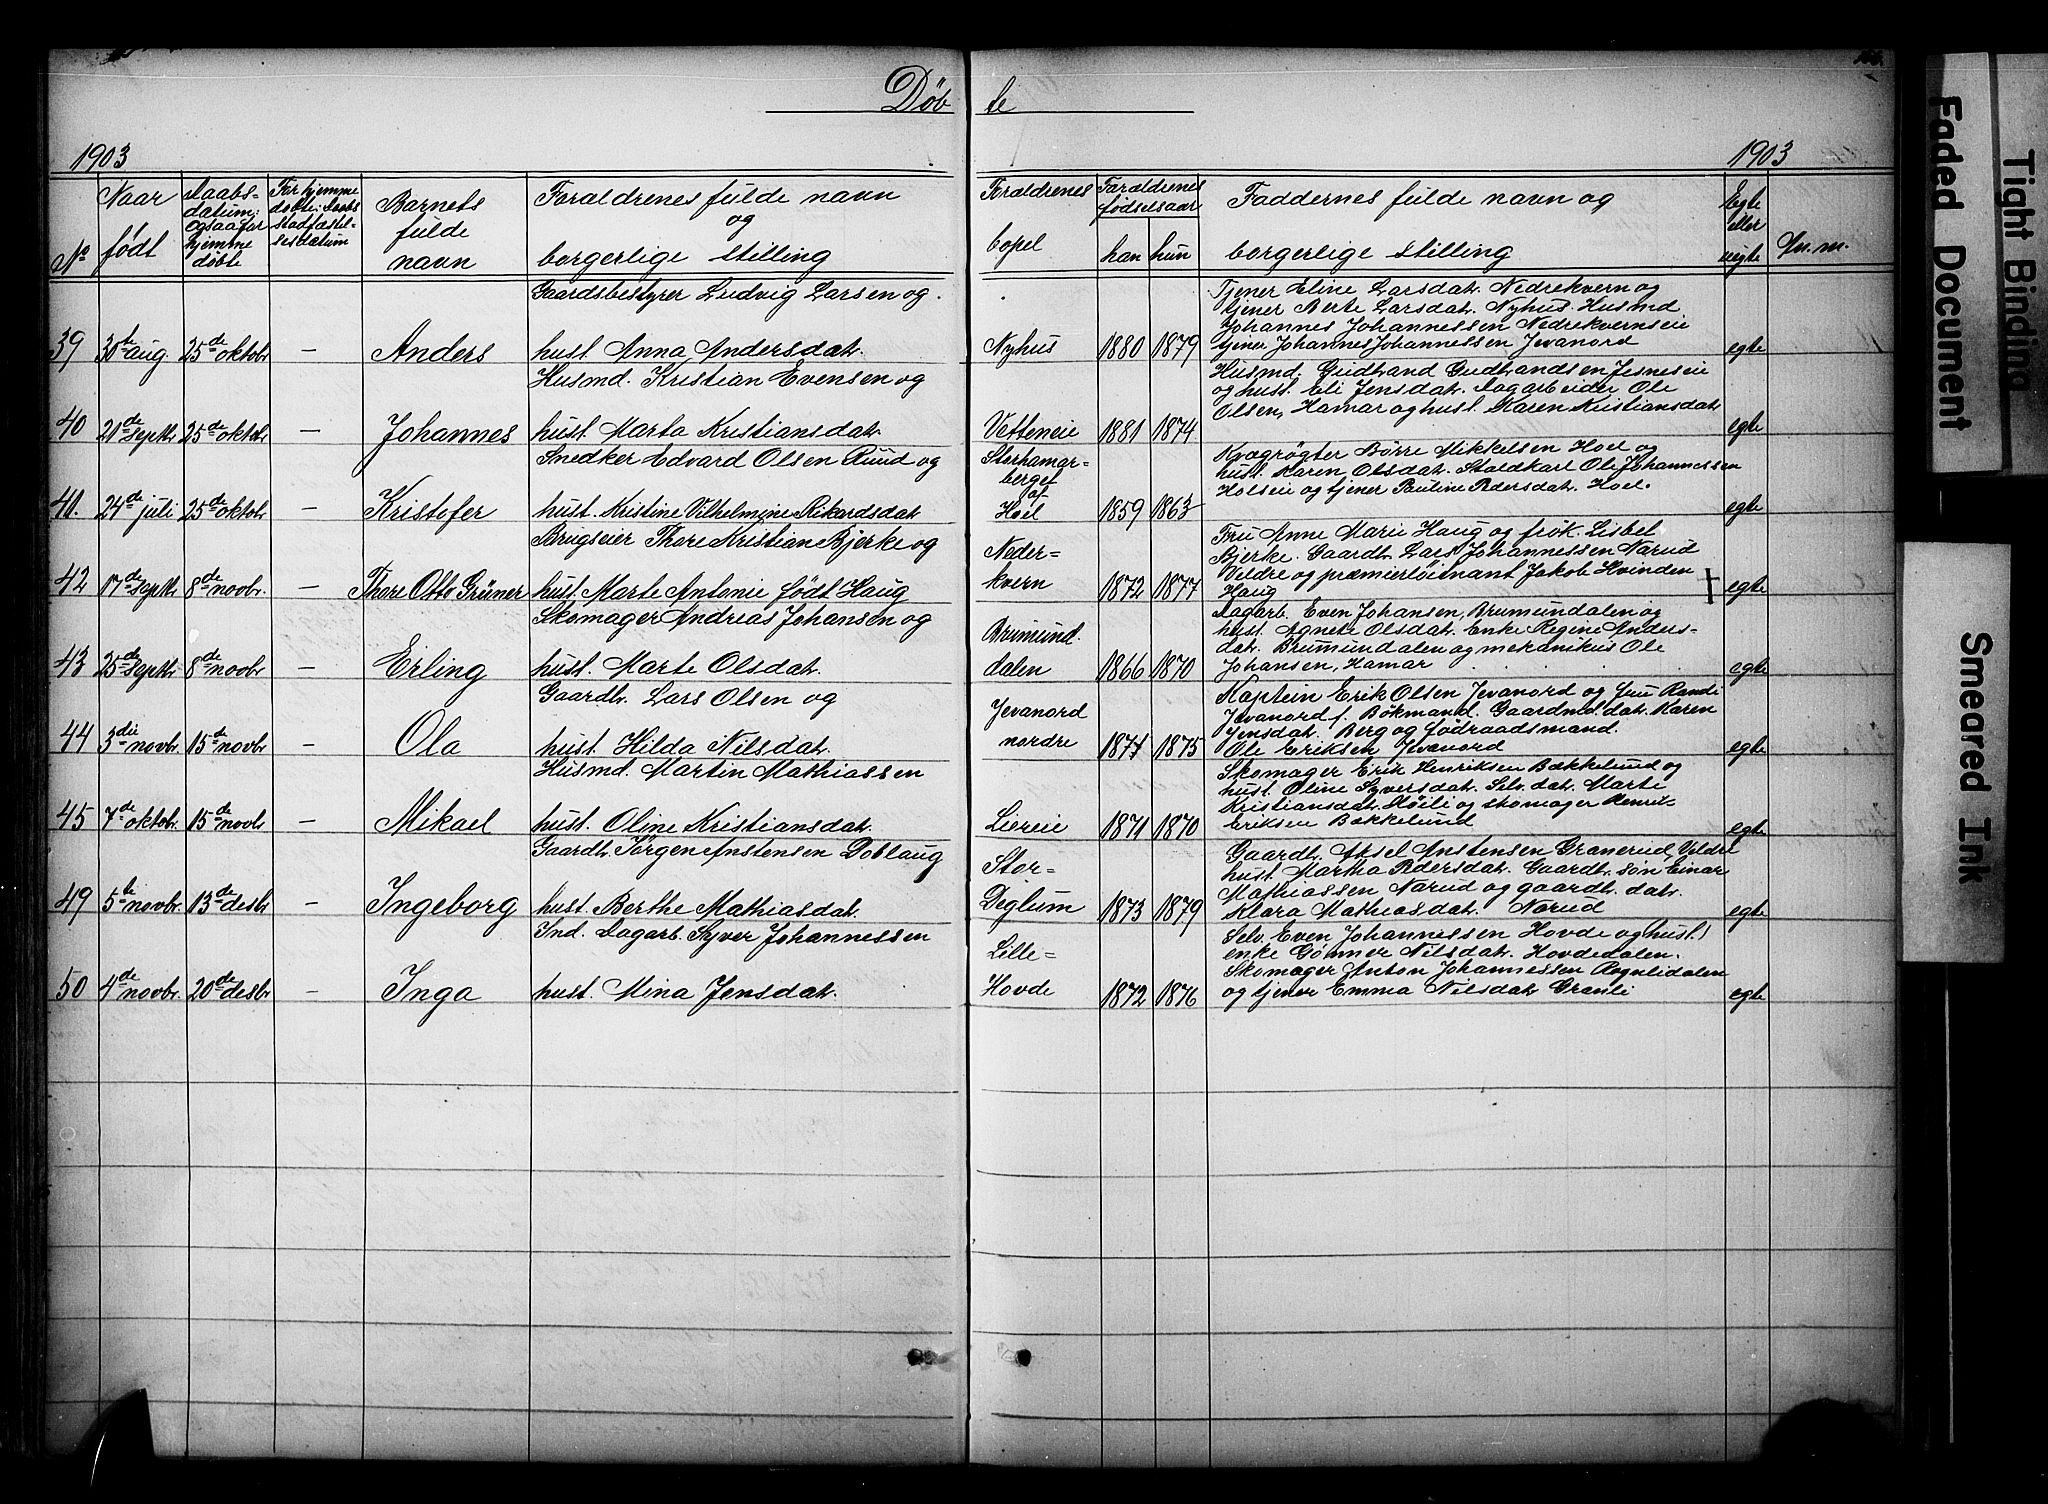 Døbte
1903 1903
No
Naar født
Daabsdatum; ogsaa for hjemmedøbte
For hjemmedøbte: Daabsstadfæstelsesdatum
Barnets fulde navn
Foraldrenes fulde navn og borgerlige stilling
Foraldrenes bopel
Foraldrenes fødselsaar
han hun
Faddernes fulde navn og borgerlige stilling
Egte eller uegte
An. m.
39 30te aug 25de oktobr — Anders
Gaardsbestyrer Ludvig Larsen og
hust. Anna Andersdatr.
Nyhus 1880 1879
Tjener Eline Larsdatr. Nedrekvern og
tjener Berte Larsdatr. Nyhus. Husmd
Johannes Johannessen Nedrekvernseie
tjener Johannes Johannessen Jevanord
egte
40 20de septbr 25de oktobr — Johannes
Husmd. Kristian Evensen og
hust. Marta Kristiansdatr.
Vetteneie 1881 1874
Husmd. Gudbrand Gudbrandsen Jesneseie
og hust. Eli Jensdatr. Dagarbeider Ole
Olsen, Hamar og hust. Karen Kristiansdatr
egte
41. 24de juli 25de oktobr — Kristofer
Snedker Edvard Olsen Ruud og
hust. Kristine Vilhelmine Rikardsdatr
Storhamarberget af Hoel 1859 1863
Kvægrøgter Børre Mikkelsen Hoel og
hust. Karen Olsdatr. Staldkarl Ole Johannessen
Holseie og tjener Pauline Pedersdatr. Hoel.
egte
42 17de septbr 8de novbr. — Thore Otto Grüner
Brugseier Thore Kristian Bjerke og
hust. Marte Antonie født Haug
Nederkvern 1872 1877
Fru Anne Marie Haug og frøk. Lisbet
Bjerke. Gaardbr. Lars Johannessen Narud
Veldre og præmierløitnant Jakob Hvinden
Haug
egte
43 25de septbr 8de novbr — Erling
Skomager Andreas Johansen og
hust. Marte Olsdatr.
Brumunddalen 1866 1870
Dagarb. Even Johansen, Brumundalen og
hust. Agnete Olsdatr. Enke Regine Andersdatr.
Brumundalen og mekanikus Ole
Johansen, Hamar
egte
44 3die novbr 15de novbr — Ola
Gaardbr. Lars Olsen og
hust. Hilda Nilsdatr.
Jevanord nordre 1871 1875
Kaptein Erik Olsen Jevanord og fru Randi
Jevanord f. Bøkmand. Gaardmd.datr. Karen
Jensdatr. Berg og fødraadsmand.
Ole Eriksen Jevanord
egte
45 7de oktobr. 15de novbr — Mikael
Husmd. Martin Mathiassen
hust. Oline Kristiansdatr.
Liereie 1871 1870
Skomager Erik Henriksen Bækkelund og
hust. Oline Syversdatr. Selv.datr. Marte
Kristiansdatr. Høili og skomager Henrik
Eriksen Bækkelund
egte
49 5te novbr. 13de desbr — Ingeborg
Gaardbr. Jørgen Anstensen Doblaug
hust. Berthe Mathiasdatr.
Stor-Deglum 1873 1879
Gaardbr. Aksel Anstensen Granerud, Veldre
hust. Martha Pedersdatr. Gaardbr. søn Einar
Mathiassen Narud og gaardbr. datr.
Klara Mathiasdatr. Narud
egte
50 4de novbr. 20de desbr — Inga
Ind. Dagarb. Syver Johannessen
hust. Mina Jensdatr.
Lille-Hovde 1872 1876
Selv. Even Johannessen Hovde og hust.
enke Gønner Nilsdatr. Hovdedalen.
Skomager Anton Johannessen Rognlidalen
og tjener Emma Nilsdatr. Granli
egte
Faded Document
Tight Binding
Smeared Ink